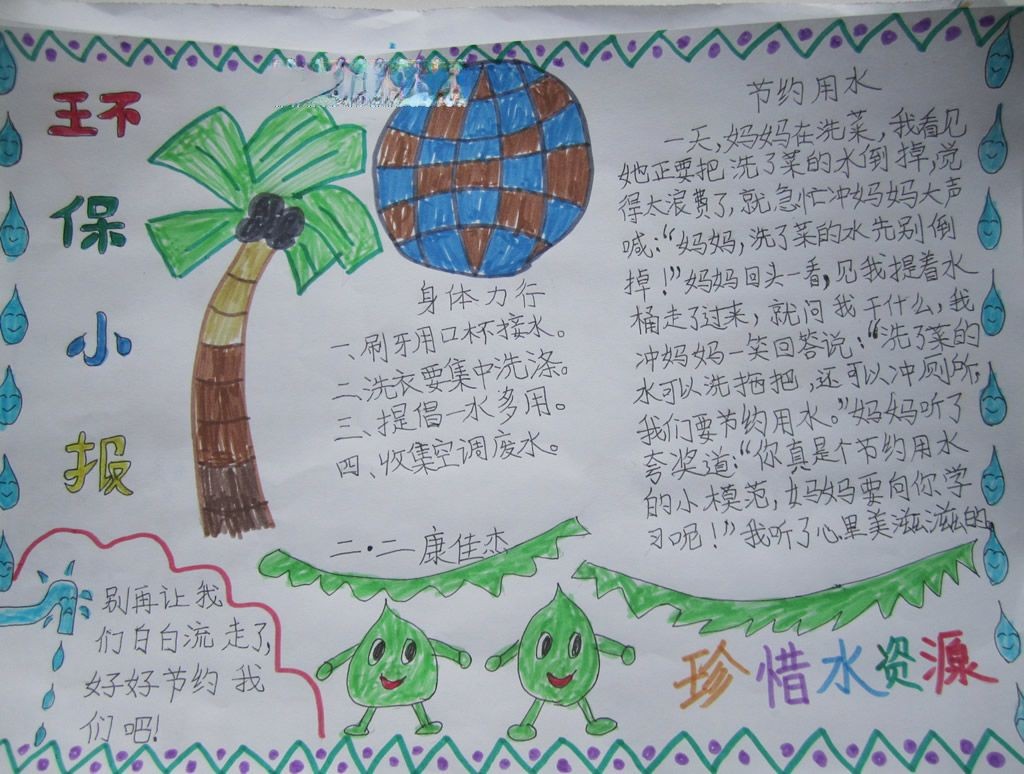 环保小报
身体力行
一、刷牙用口杯接水。
二、洗衣要集中洗涤。
三、提倡一水多用。
四、收集空调废水。
二·二 康佳杰
节约用水
一天,妈妈在洗菜,我看见
她正要把洗了菜的水倒掉,觉
得太浪费了,就急忙冲妈妈大声
喊:“妈妈,洗了菜的水先别倒
掉!”妈妈回头一看,见我提着水
桶走了过来,就问我干什么,我
冲妈妈一笑回答说:“洗了菜的
水可以洗拖把,还可以冲厕所,
我们要节约用水。”妈妈听了
夸奖道:“你真是个节约用水
的小模范,妈妈要向你学
习呢!”我听了心里美滋滋的。
别再让我
们白白流走了,
好好节约我
们吧!
珍惜水资源